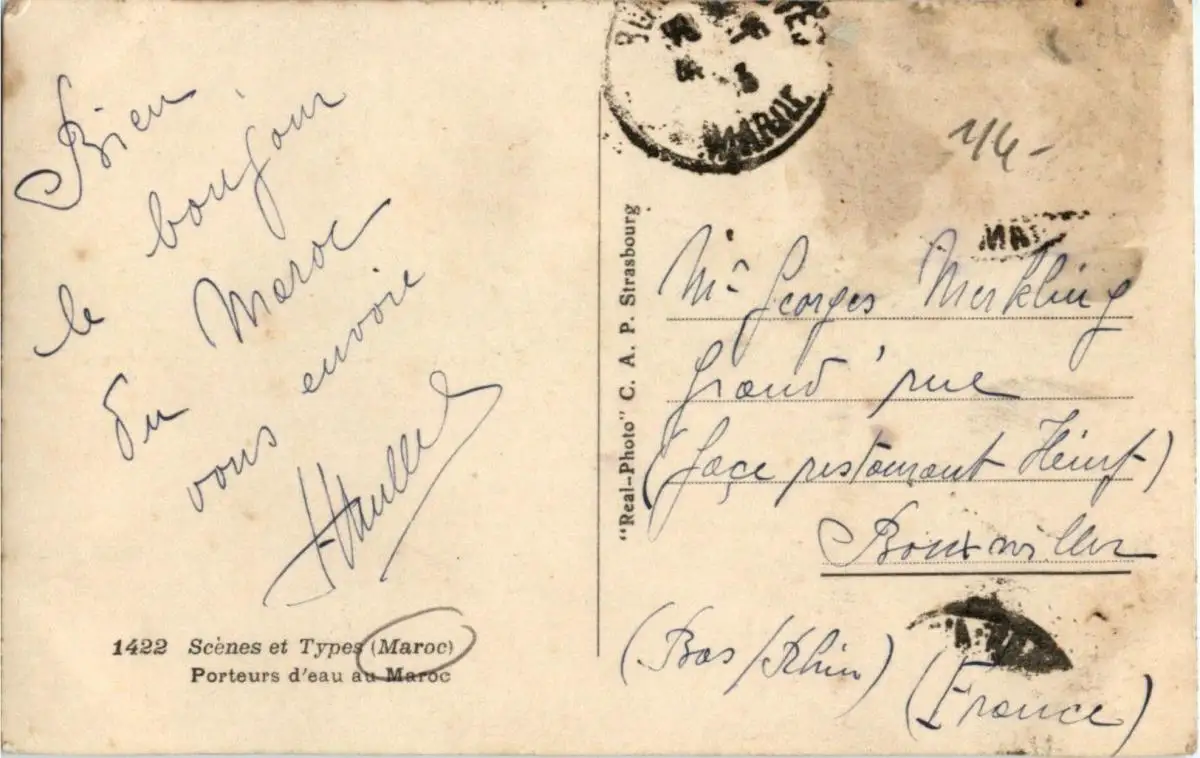 Bien
le bonjour
du Maroc
vous envoie
1422 Scènes et Types (Maroc)
Porteurs d'eau au Maroc
"Real-Photo" C. A. P. Strasbourg
MAROC
1/4-
MA
Mr Georges Merkling
Grand'rue
(face restaurant Heintz)
Bouxwiller
(Bas/Rhin)
(France)